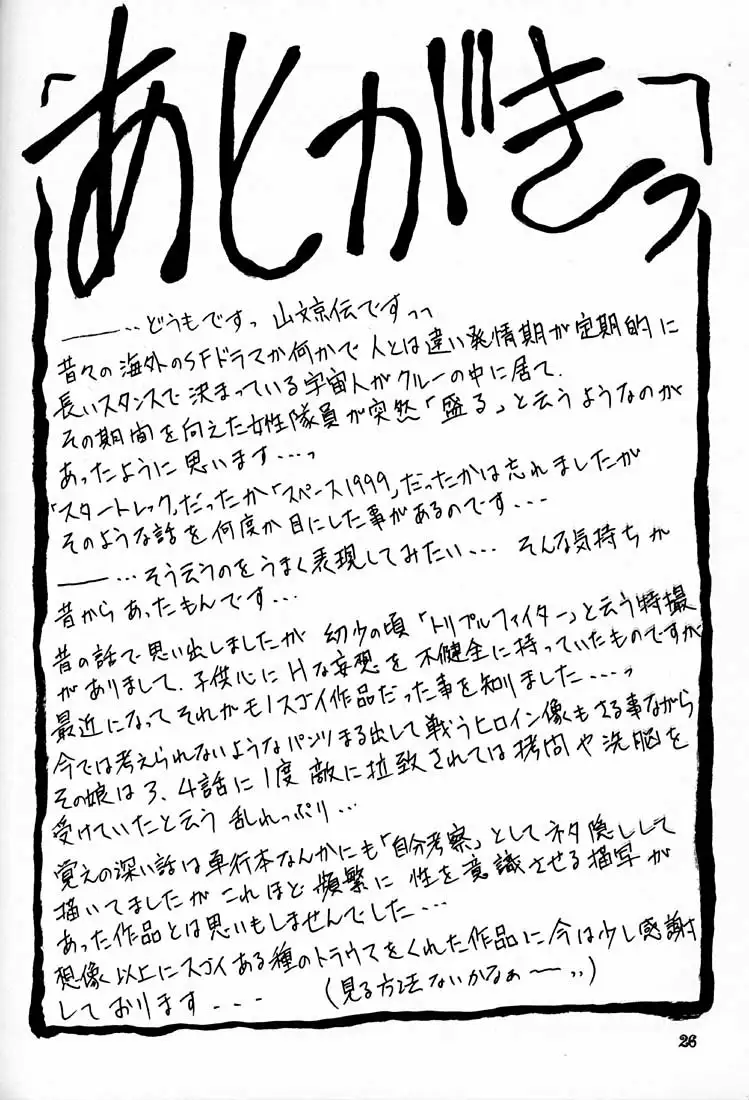 「あとがきっ
――‥どうもですっ 山文京伝ですっっ
昔々の海外のSFドラマか何かで 人とは違い発情期が定期的に
長いスタンスで決まっている宇宙人がクルーの中に居て、
その期間を向えた女性隊員が突然「盛る」と云うようなのが
あったように思います…っ
「スタートレック」だったか「スペース1999」だったかは忘れましたが
そのような話を何度か目にした事があるのです…
――…そう云うのをうまく表現してみたい… そんな気持ちが
昔からあったもんです…
昔の話で思い出しましたが 幼少の頃「トリプルファイター」と云う特撮
がありまして、子供心にHな妄想を不健全に持っていたものですが
最近になってそれがモノスゴイ作品だった事を知りました…っ
今では考えられないようなパンツまる出しで戦うヒロイン像もさる事ながら
その娘は3、4話に1度敵に拉致されては拷問や洗脳を
受けていたと云う乱れっぷり…
覚えの深い話は単行本なんかにも「自分考察」としてネタ隠しして
描いてましたが これほど頻繁に 性を意識させる描写が
あった作品とは思いもしませんでした…
想像以上にスゴイある種のトラウマをくれた作品に今は少し感謝
しております… (見る方法ないかなぁー‥)
26